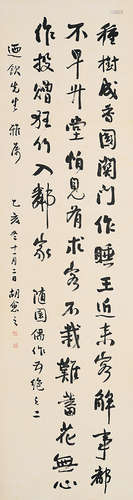 種樹成香國關門作睡王近來客解事都
不早升堂怕見有求客不栽難蓄花無心
作投贈狂竹入鄰家 隨園偶作五絕之二
先生雅屬 乙亥 十月二日 胡